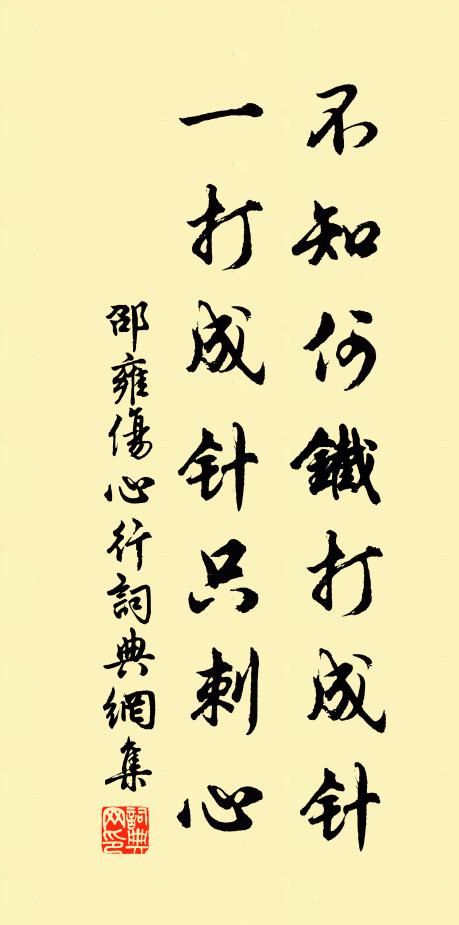 不知何鐵打成针
一打成针只刺心
邵雍傷心行詞典網集
詞典网印